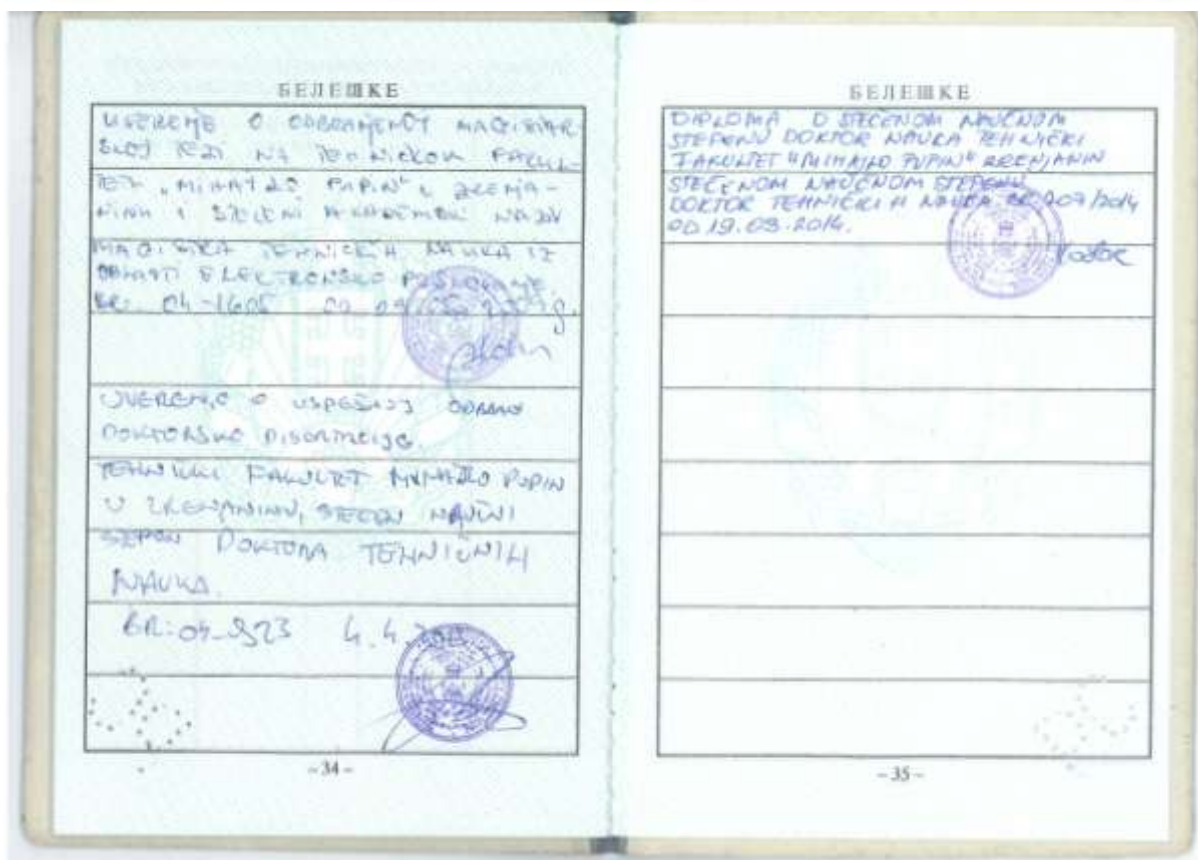 БЕЛЕШКЕ
UVERENJE O ODBRANJENOJ MAGISTAR-
SKOJ TEZI NA TEHNIČKOM FAKUL-
"MIHAJLO PUPIN" U ZRENJA-
NINU I STEČENI AKADEMSKI NAZIV
MAGISTRA TEHNIČKIH NAUKA IZ
OBLASTI ELEKTRONSKO POSLOVANJE.
BR. 04-1605 OD
UVERENJE O USPEŠNOJ ODBRANI
DOKTORSKE DISERTACIJE.
TEHNIČKI FAKULTET MIHAJLO PUPIN
U ZRENJANINU, STEČEN NAUČNI
STEPEN DOKTORA TEHNIČKIH
NAUKA.
BR: 04-923 4.4.
-34-
БЕЛЕШКЕ
DIPLOMA O STEČENOM NAUČNOM
STEPENU DOKTOR NAUKA TEHNIČKI
FAKULTET "MIHAJLO PUPIN" ZRENJANIN
STEČENOM NAUČNOM STEPENU
DOKTOR TEHNIČKIH NAUKA BR. 207/2014
OD 19.03.2014.
-35-